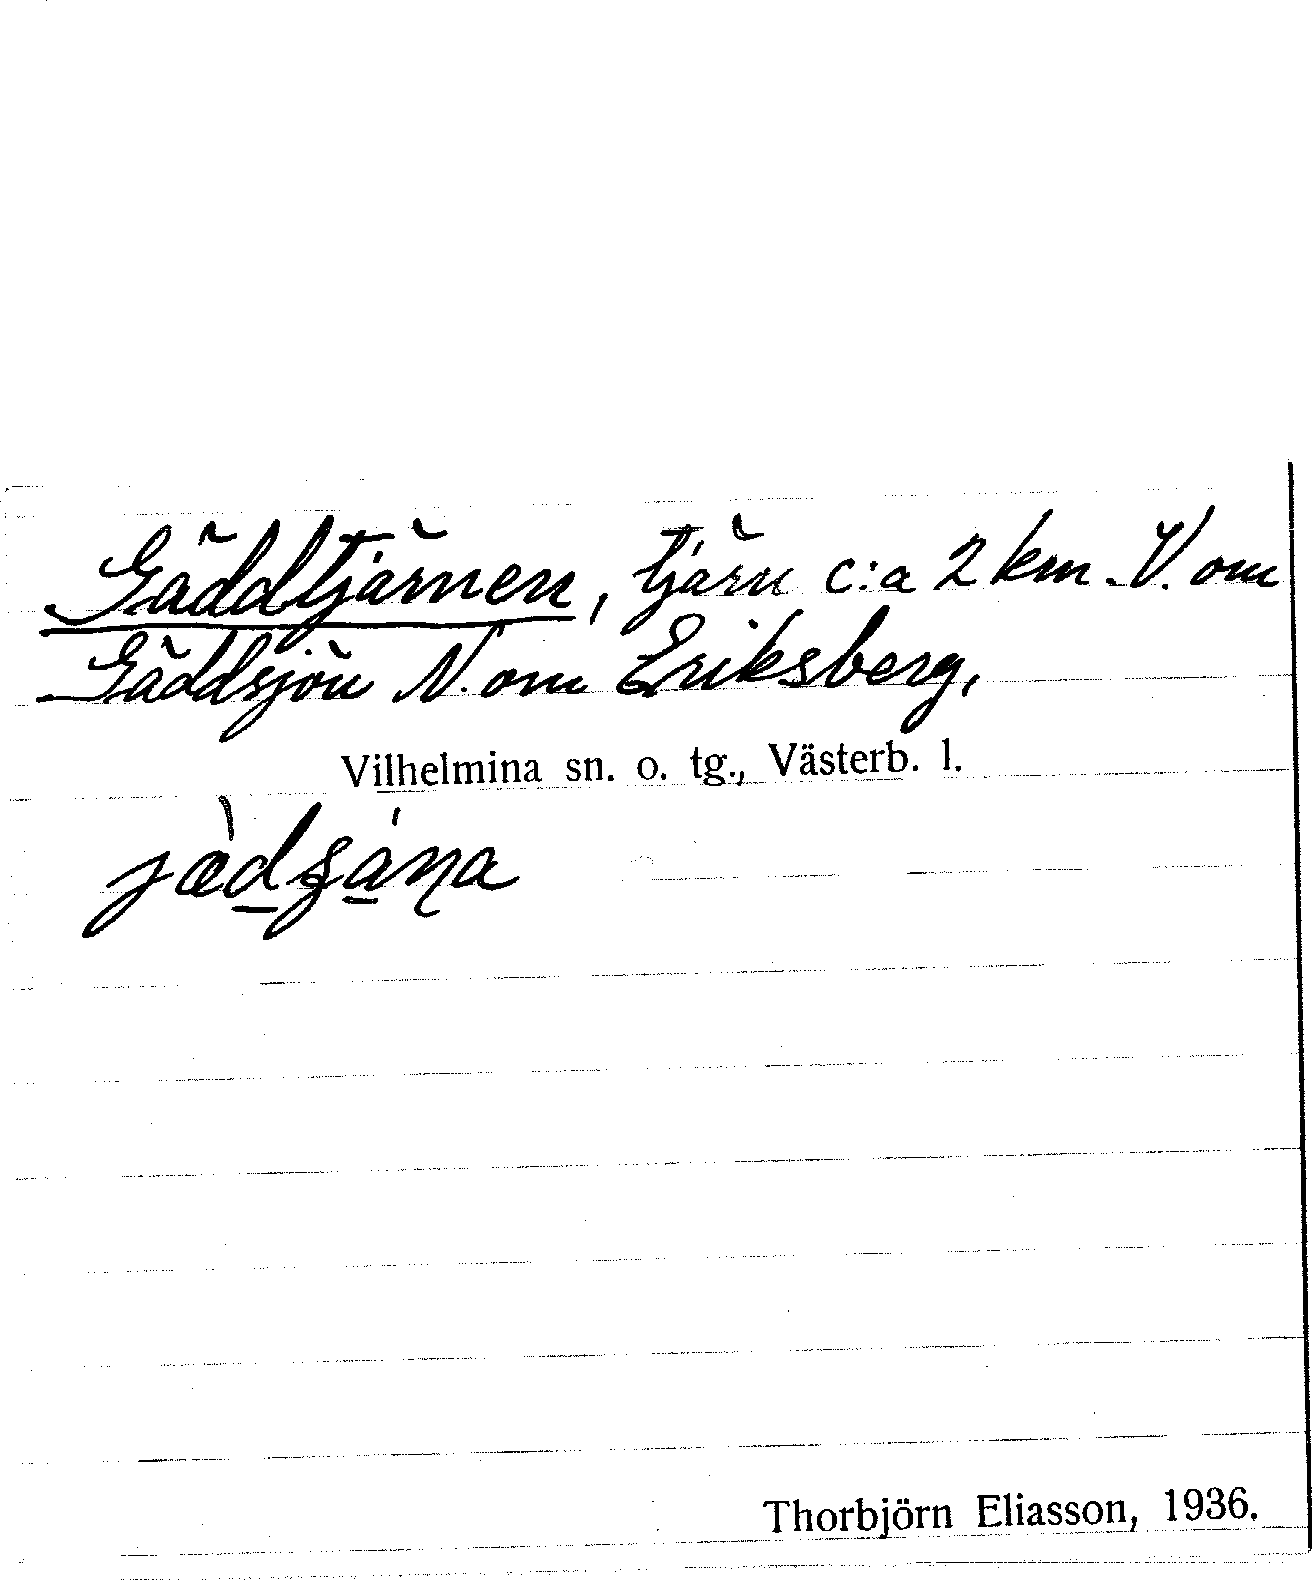 Gäddtjärnen, tjärn c:a 2 km V. om
Gäddsjön N. om Eriksberg,
Vilhelmina sn. o. tg., Västerb. l.
Thorbjörn Eliasson, 1936.